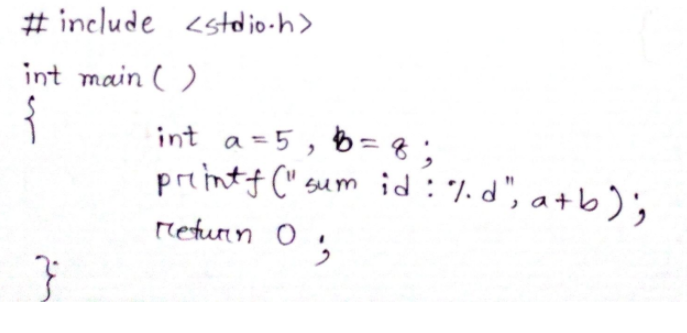 # include <stdio.h>
int main ( )
{
int a = 5 , b = 8 ;
printf ("sum id : %d", a+b) ;
return 0 ;
}